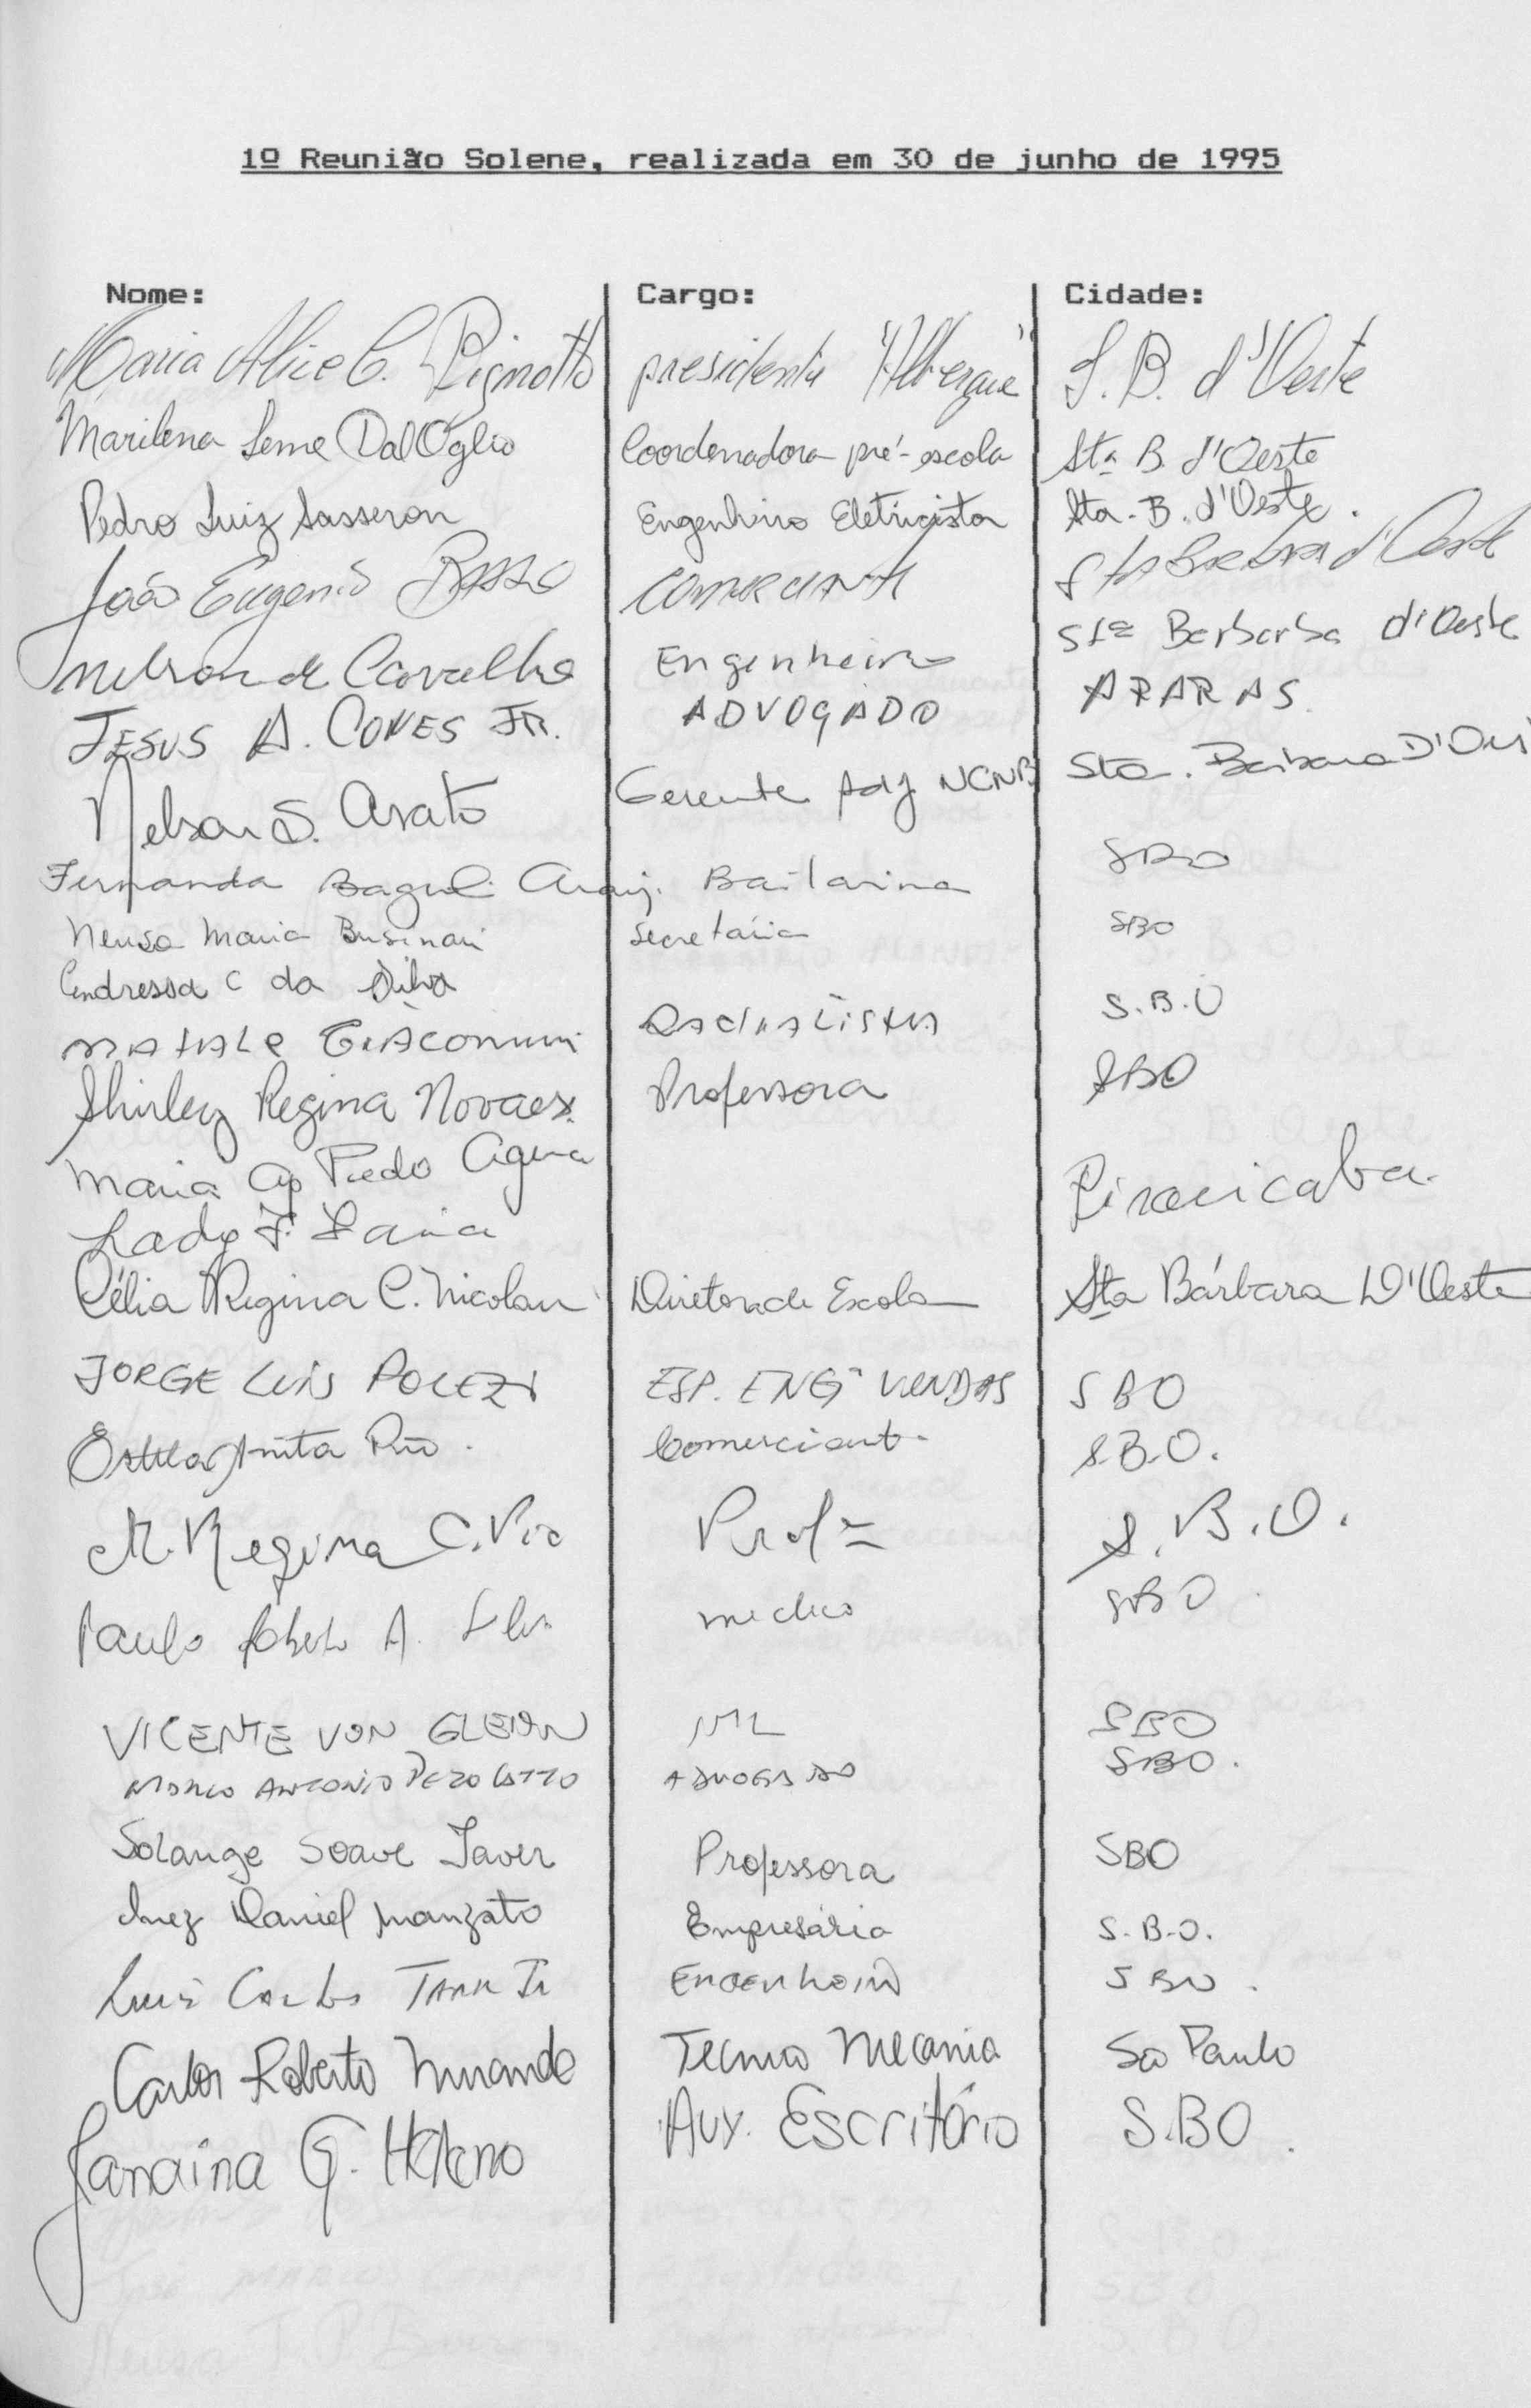 1º Reunião Solene, realizada em 30 de junho de 1995
Nome: Cargo: Cidade:
Maria Alice C. Pignotto presidente "Albergue" S. B. d'Oeste
Marilena Leme Dal'Óglio Coordenadora pré-escola Sta B. d'Oeste
Pedro Luiz Sasseron Engenheiro Eletricista Sta. B. d'Oeste.
João Eugenio Comerciante Sta Barbara d'Oeste
Nelson de Carvalho Engenheiro Sta Barbarba d'Oeste
JESUS A. JR. ADVOGADO ARARAS
Nelson S. Arato Gerente Adj Sta. Barbara
Fernanda Bailarina SBO
Neusa Maria Businari Secretária SBO
Andressa C da Silva
NATALE Giacomini RADIALISTA S.B.O
Shirley Regina Novaes Professora SBO
Maria Ap
Lady F. Faria Piracicaba.
Célia Regina C. Nicolau Diretora de Escola Sta Bárbara D'Oeste
JORGE LUIS POLEZI ESP. ENGª VENDAS SBO
Anita Comerciante S.B.O.
M. Regina C. Profª S.B.O.
Paulo Roberto A. medico SBO
VICENTE VON SBO
MARCO ANTONIO ADVOGADO SBO.
Solange Soave Professora SBO
Inez Daniel Manzato Empresária S.B.O.
Luis Carlos Jr Engenheiro SBO.
Carlos Roberto Tecnico Mecanico São Paulo
Janaina G. Heleno Aux. Escritório S.BO.